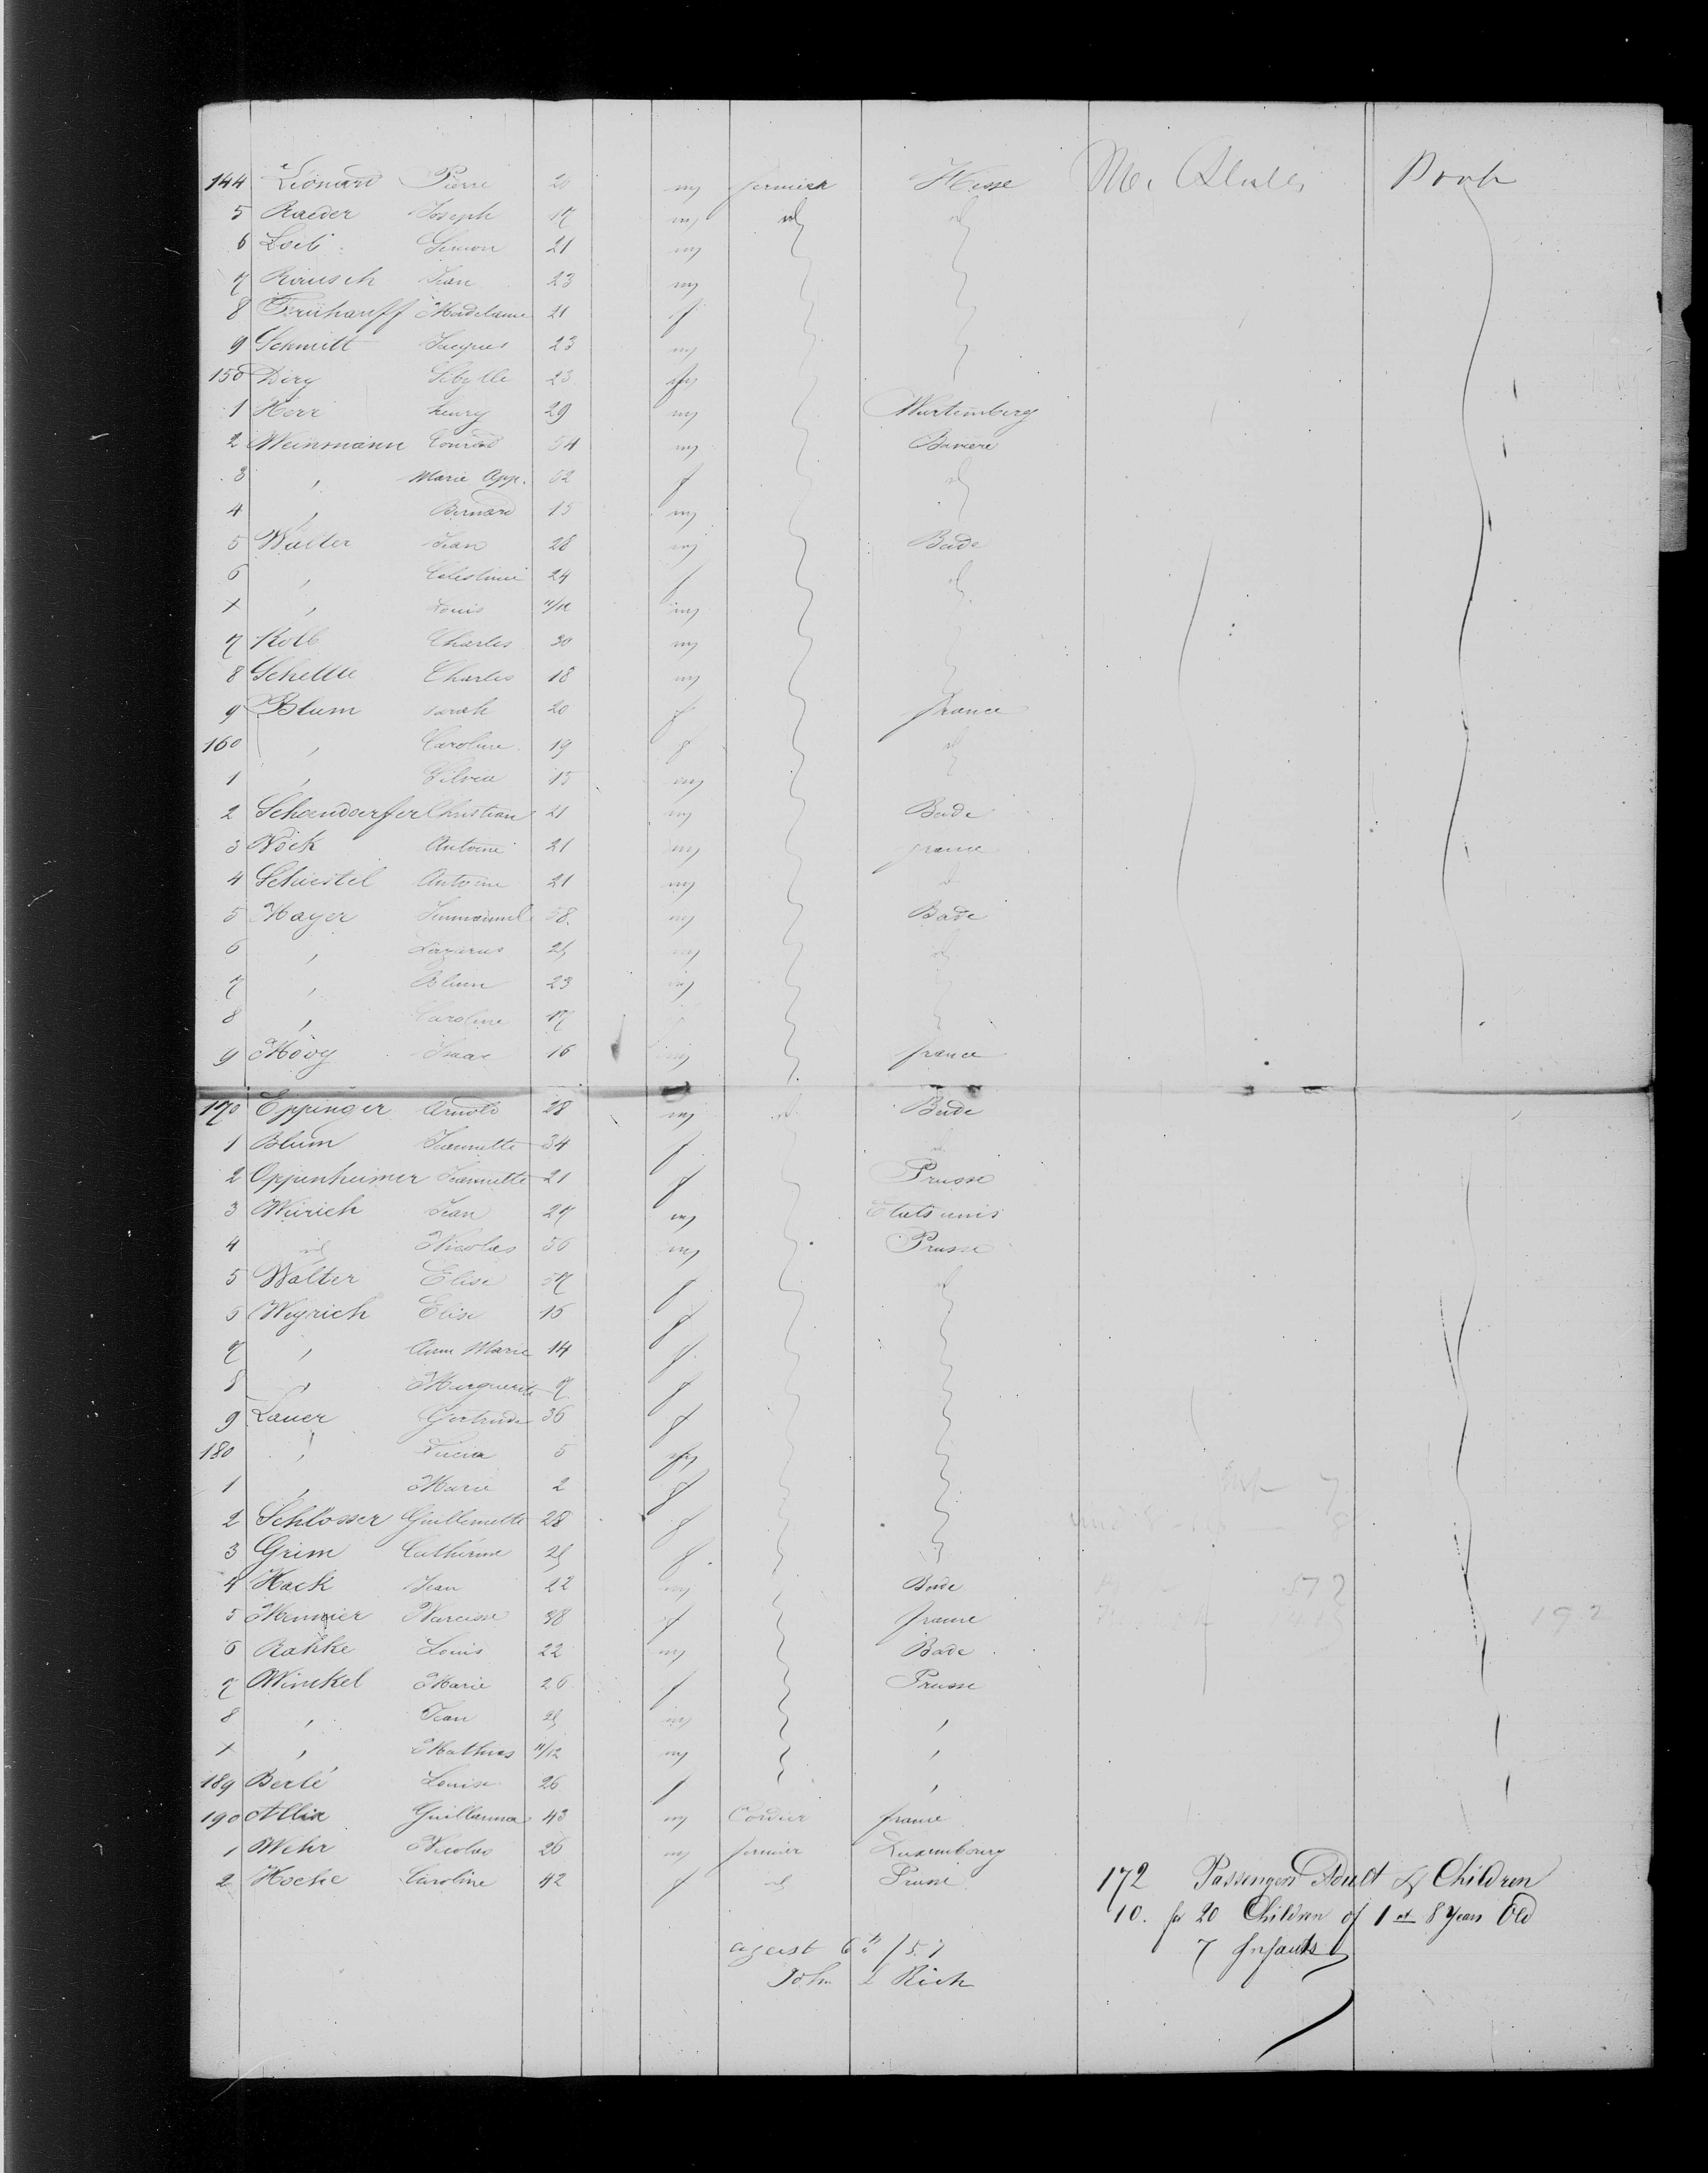 144 Léonard Pierre 20 m fermier Hesse U. States Dont
5 Raeder Joseph 17 m id id
6 Loeb Simon 21 m
7 Rausch Jean 23 m
8 Frühauff Madelaine 21 f
9 Schmitt Jacques 23 m
150 Diry Sibylle 23
1 Herr henry 29 m Wurtemberg
2 Weinmann Conrad 54 m Baviere
3 , Marie App. 52 f id
4 , Bernard 15 m
5 Walter Jean 28 m Bade
6 , Celestine 24 f id
x , Louis 11/12 m
7 Kolb Charles 30 m
8 Schellte Charles 18 m
9 Blum sarah 20 f france
160 , Caroline 19 f id
1 , Silvea 15 m
2 Schoendoerfer Christian 21 m Bade
3 Nöck Antoine 21 m france
4 Schiestel Antoine 21 m id
5 Mayer 58 m Bade
6 , Lazarus 25 m id
7 , Blum 23 m
8 , Caroline 17
9 Isaac 16 m france
170 Eppinger Arnold 28 m id Bade
1 Blum Jeannette 34 f id
2 Oppenheimer Jeannette 21 f Prusse
3 Weirich Jean 27 m Etats unis
4 id Nicolas 56 m Prusse
5 Walter Elise 57 f id
6 Weyrich Elise 16 f
7 , Ann Marie 14 f
8 , Marguerite 7 f
9 Lauer Gertrude 36 f
180 , Lucia 5
1 , Marie 2 f
2 Schlösser Guillemette 28 f
3 Grim Catherine 25 f
4 Hack Jean 22 m Bade
5 Meunier Narcisse 38 f france
6 Rahke Louis 22 m Bade
7 Winckel Marie 26 f Prusse
8 , Jean 25 m ,
x , Mathias 11/12 m ,
189 Berlé Louise 26 f ,
190 Allix Guillaume 43 m Cordier france
1 Wehr Nicolas 26 m fermier Luxembourg
2 Hoche Caroline 42 f id Prusse
172 Passengers Adult & Children
10. for 20 Children of 1 at 8 Years Old
7 Infants
agust 6th /57
John L Rich